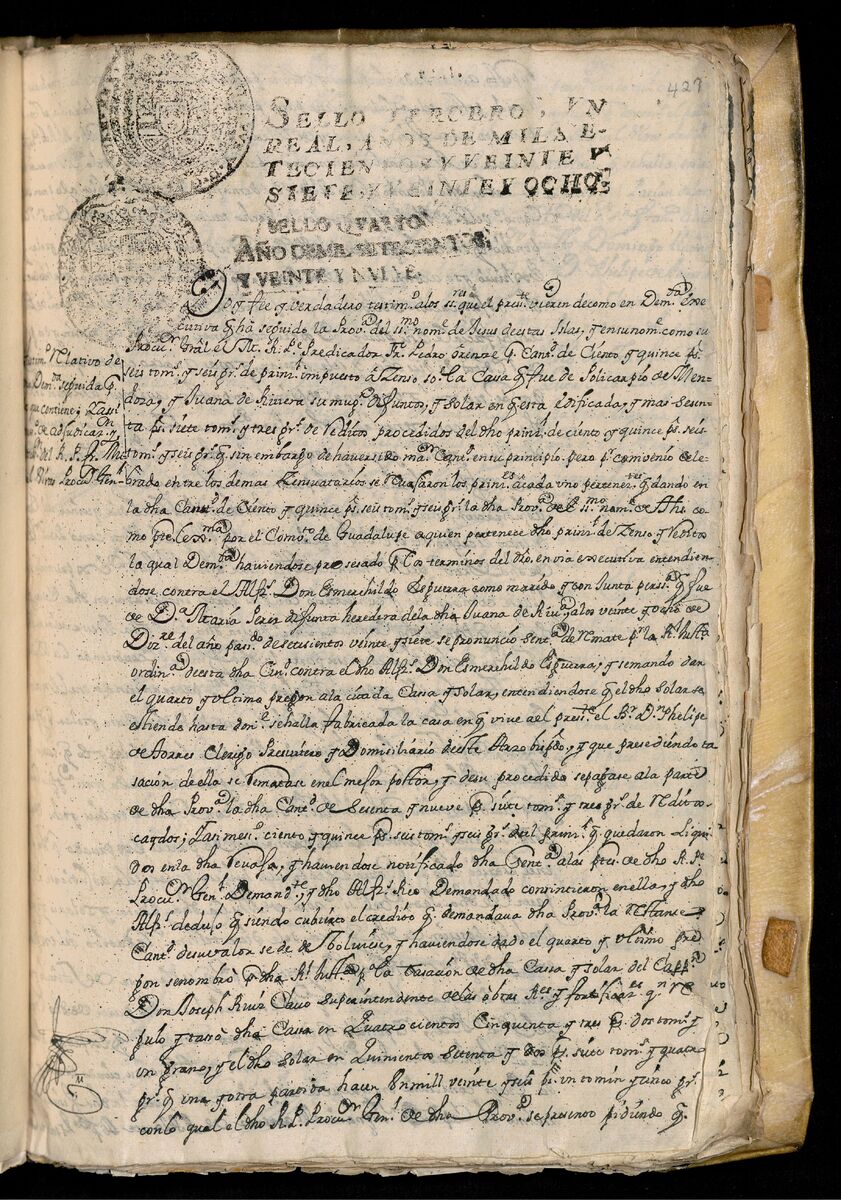 423
SELLO TERCERO, VN
REAL, AÑOS DE MIL SE-
TECIENTOS Y VEINTE Y
SIETE, Y VEINTE Y OCHO
SELLO QVARTO
AÑO DE MIL SETECIENTOS,
Y VEINTE Y NVEVE
Doy fee y verdadero testim.º a los ss.res que el press.te vieren de como en Dem.da exe
cutiva q ha seguido la Prov.a del ss.mo nom.e de Jesus de estas Islas, y en su nom.e como su
Procu.or Gral el M. R. P.e Predicador Fr. Pedro q Cant.d de Ciento y quince p.s
seis tom.s y seis gr.s de prin.l impuesto à Zenso so.e la Casa q fue de Policarpio de Men-
doza, y Juana de Rivera su mug.r difuntos, y solar en q esta edificada, y mas sesen-
ta p.s siete tom.s y tres gr.s de reditos procedidos del dho prin.l de ciento y quince p.s seis
tom.s y seis gr.s q sin embargo de haver sido ma.or Cant.d en su principio pero p.r convenio cele-
brado entre los demas Zensuatarios se los prin.es a cada uno pertenen.tes q dando en
la dha Cant.d de Ciento y quince p.s seis tom.s y seis gr.s la dha Prov.a de el ss.mo nom.e de co-
mo por el Comv.to de Guadalupe a quien pertenece dho prin.l de Zenso, y reditos
la qual Dem.da haviendose prosesado p.r los terminos del dro, en via executiva entendien-
dose contra el Alf.s Don Esmerehildo Esguerra como marido y conjunta pers.a q fue
de D.a Maria Perez difunta heredera de la dha Juana de Riv.a a los veinte y ocho de
Diz.re del año pas.do de setesientos veinte y siete se pronunció sent.a de remate p.r la R.l Just.a
ordin.a de esta dha Ciu.d contra el dho Alf.s Don Esmerehildo Esguerra, y se mando dar
el quarto y ultimo pregon a la citada Cassa y solar, entendiendose q el dho solar se
estiende hasta don.e se halla fabricada la casa en q vive a el pres.te el B.r D.n Phelipe
de Torres Clerigo Presvitero y Domisiliario de este Arzobispdo, y que presediendo ta
sación de ella se rematase en el mejor postor, y de su procedido se pagase a la parte
de dha Prov.a la dha Cant.d de Sesenta y nueve p.s siete tom.s y tres gr.s de reditos
caydos; y asimes.º ciento y quince p.s seis tom.s y seis gr.s del prin.l q quedaron liqui
dos en la dha revaja, y haviendose notificado dha sent.a a las ptes de dho R. P.e
Procu.or Gen.l Demand.te, y dho Alf.s Reo Demandado consintieron en ella, y dho
Alf.s dedujo q siendo cubierto el credito q demandava dha Prov.a la restante
Cant.d de su valor se de y haviendose dado el quarto y ultimo pre
gon se nombró p.r dha R.l Just.a p.a la tasación de dha Cassa y solar del Cap.n
Don Joseph Ruiz superintendente de las obras R.es y fortificaz.es q.n re
gulo y tassó dha Cassa en Quatrocientos Cinquenta y tres p.s dos tom.s y
un grano, y el dho solar en Quinientos Setenta y dos p.s siete tom.s y quatro
gr.s q una y otra partida hacen un mill veinte y seis p.s un tomin y sinco gr.s
con lo qual el dho R. P. Procu.or Gen.l de dha Prov.a se presento pidiendo q
relativo de
Dem.da seguida p.r
que contiene;
de adjudicaz.on
del R. P. Fr.
Procu.or Gen.l